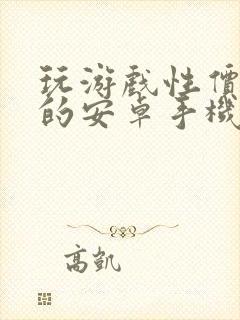 玩游戲性價
的安卓手機
高凱